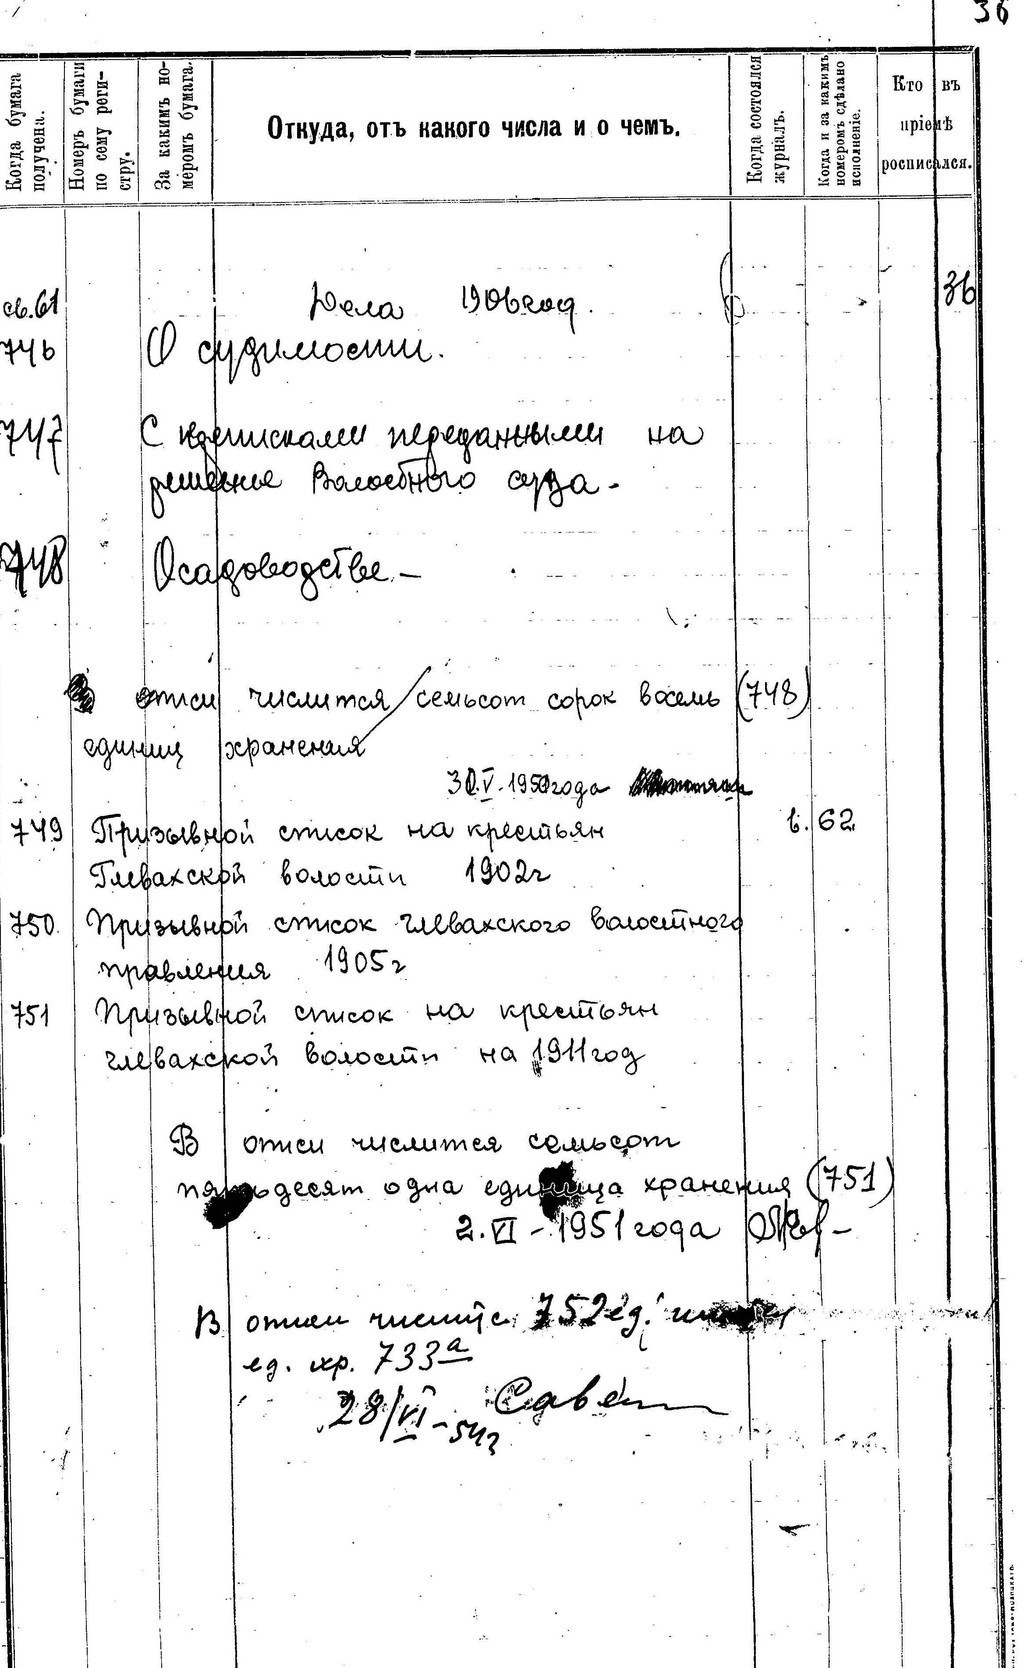 36
Когда бумага получена.
Номеръ бумаги по сему реги-стру.
За какимъ но-меромъ бумага.
Откуда, отъ какого числа и о чемъ.
Когда состоялся журналъ.
Когда и за какимъ номеромъ сдѣлано исполненіе.
Кто въ пріемѣ росписался.
св. 61 Дела 1906 год. 36
746 О судимости.
747 С переданными на
решение Волостного суда -
748 О садоводстве -
В описи числится семьсот сорок восемь (748)
единиц хранения
V. 195 года
749 Призывной список на крестьян 62
Глевахской волости 1902г
750. Призывной список глевахского волостного
правления 1905г
751 Призывной список на крестьян
глевахской волости на 1911 год
В описи числится семьсот
пятьдесят одна единица хранения (751)
2. VI - 1951 года
В описи числитс 752 ед.
ед. хр. 733а
28/VI - 54г